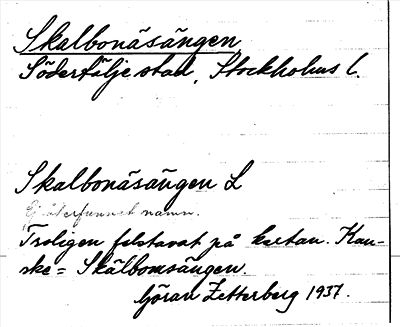 Skalbonäsängen
Södertälje stad, Stockholms l.
Skalbonäsängen L
Ej återfunnet namn.
Troligen felstavat på kartan. Kan-
ske = Skälbomsängen.
Göran Zetterberg 1937.